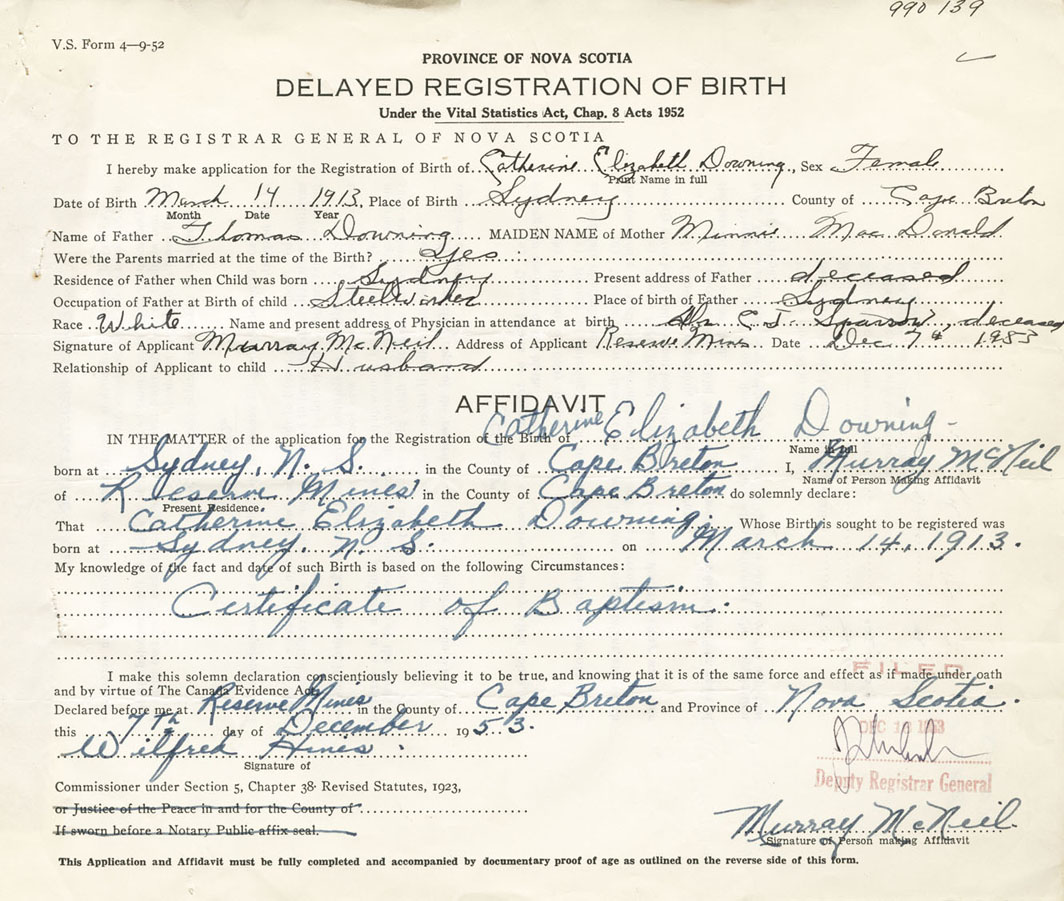 990 139
V.S. Form 4—9-52
PROVINCE OF NOVA SCOTIA
DELAYED REGISTRATION OF BIRTH
Under the Vital Statistics Act, Chap. 8 Acts 1952
TO THE REGISTRAR GENERAL OF NOVA SCOTIA
I hereby make application for the Registration of Birth of Catherine Elizabeth Downing, Sex Female
Print Name in full
Date of Birth March 14 1913, Place of Birth Sydney County of Cape Breton
Month Date Year
Name of Father Thomas Downing MAIDEN NAME of Mother Minnie Mac Donald
Were the Parents married at the time of the Birth? Yes
Residence of Father when Child was born Sydney Present address of Father deceased
Occupation of Father at Birth of child Steelworker Place of birth of Father Sydney
Race White Name and present address of Physician in attendance at birth C J Sparrow, deceased
Signature of Applicant Murray McNeil Address of Applicant Reserve Mines Date Dec 7th 1953
Relationship of Applicant to child Husband
AFFIDAVIT
IN THE MATTER of the application for the Registration of the Birth of Catherine Elizabeth Downing
Name in full
born at Sydney, N. S. in the County of Cape Breton I, Murray McNeil
Name of Person Making Affidavit
of Reserve Mines in the County of Cape Breton do solemnly declare:
Present Residence.
That Catherine Elizabeth Downing. Whose Birth is sought to be registered was
born at Sydney. N. S. on March 14, 1913.
My knowledge of the fact and date of such Birth is based on the following Circumstances:
Certificate of Baptism.
I make this solemn declaration conscientiously believing it to be true, and knowing that it is of the same force and effect as if made under oath
and by virtue of The Canada Evidence Act.
FILED
Declared before me at Reserve Mines in the County of Cape Breton and Province of Nova Scotia.
this 7th day of December 1953.
Wilfred Hines
Signature of
Deputy Registrar General
Commissioner under Section 5, Chapter 38 Revised Statutes, 1923,
or Justice of the Peace in and for the County of
If sworn before a Notary Public affix seal.
Murray McNeil
Signature of Person making Affidavit
This Application and Affidavit must be fully completed and accompanied by documentary proof of age as outlined on the reverse side of this form.